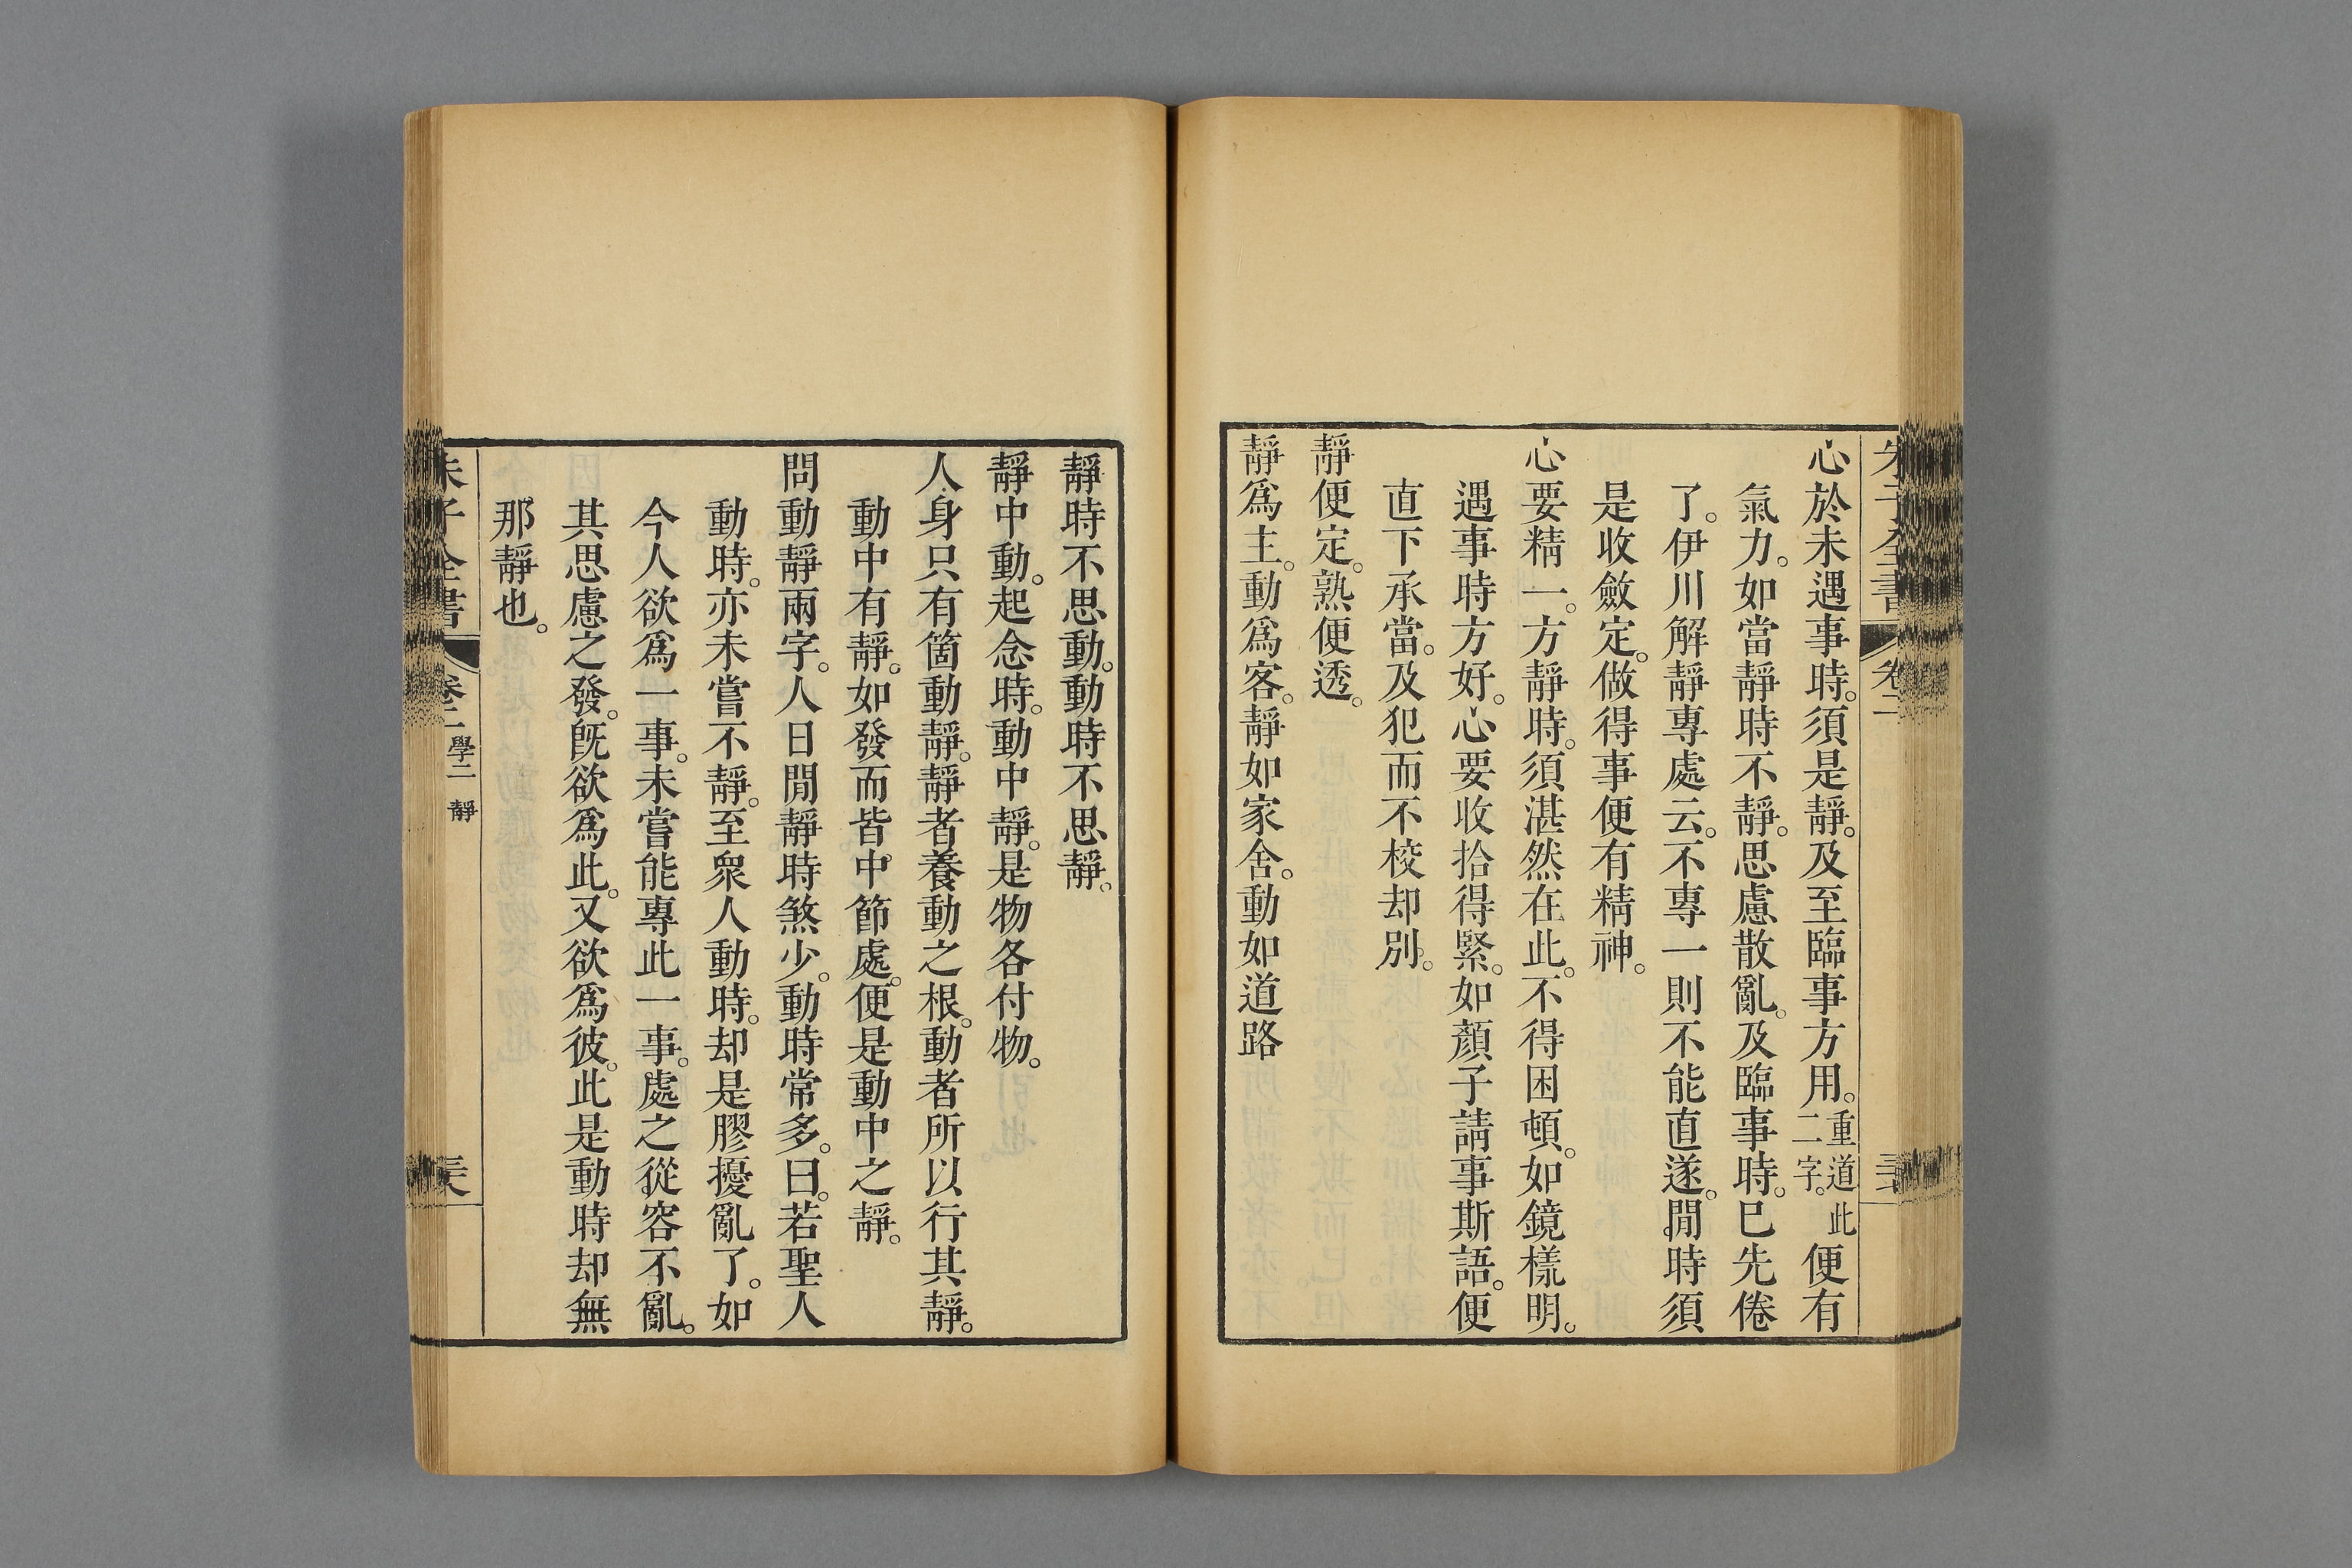 心於未遇事時。須是靜。及至臨事方用。重道此二字。便有
氣力。如當靜時不靜。思慮散亂。及臨事時。已先倦
了。伊川解靜專處云。不專一則不能直遂。閒時須
是收斂定。做得事便有精神。
心要精一。方靜時。須湛然在此。不得困頓。如鏡樣明。
遇事時方好。心要收拾得緊。如顏子請事斯語。便
直下承當。及犯而不校却別。
靜便定。熟便透。
靜爲主。動爲客。靜如家舍。動如道路
靜時不思動。動時不思靜。
靜中動。起念時。動中靜。是物各付物。
人身只有箇動靜。靜者養動之根。動者所以行其靜。
動中有靜。如發而皆中節處。便是動中之靜。
問動靜兩字。人日閒靜時煞少。動時常多。曰。若聖人
動時。亦未嘗不靜。至衆人動時。却是膠擾亂了。如
今人欲爲一事。未嘗能專此一事。處之從容不亂。
其思慮之發。旣欲爲此。又欲爲彼。此是動時却無
那靜也。
朱子全書 卷二 學二 靜